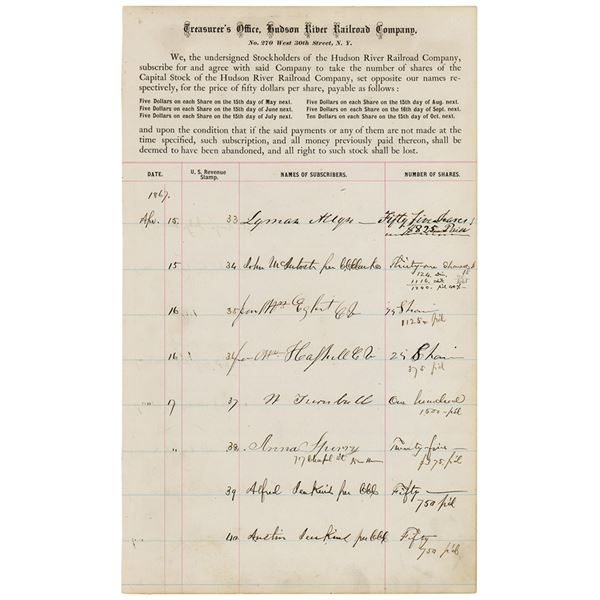 Treasurer's Office, Hudson River Railroad Company,
No. 270 West 30th Street, N. Y.
We, the undersigned Stockholders of the Hudson River Railroad Company,
subscribe for and agree with said Company to take the number of shares of the
Capital Stock of the Hudson River Railroad Company, set opposite our names re-
spectively, for the price of fifty dollars per share, payable as follows:
Five Dollars on each Share on the 15th day of May next. Five Dollars on each Share on the 15th day of Aug. next.
Five Dollars on each Share on the 15th day of June next. Five Dollars on each Share on the 16th day of Sept. next.
Five Dollars on each Share on the 15th day of July next. Ten Dollars on each Share on the 15th day of Oct. next.
and upon the condition that if the said payments or any of them are not made at the
time specified, such subscription, and all money previously paid thereon, shall be
deemed to have been abandoned, and all right to such stock shall be lost.
DATE. U. S. Revenue Stamp. NAMES OF SUBSCRIBERS. NUMBER OF SHARES.
1867.
Apr 15. 33 Lyman Allyn — Fifty five Shares
$825
15 34 John McIntosh per Thirty-one Shares
124
1116
1240
16 35 Wm 75 Shares
1125 p'd
16 36 Wm Haskell 25 Shares
375 p'd
" 17 37 Turnbull One hundred
1500 p'd
" 38 Anna Sperry Twenty-five —
77 Chapel St $375 p'd
39 Alfred Jenkins per Fifty —
750 p'd
40 Austin Jenkins per Fifty
750 p'd